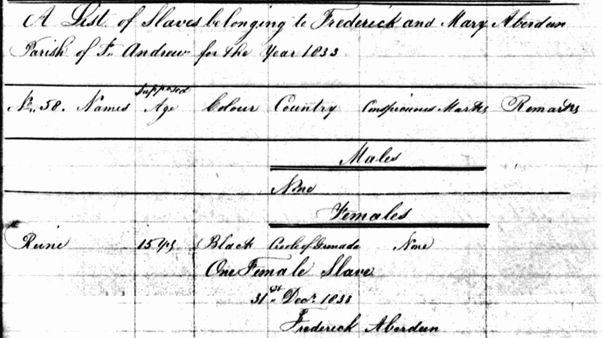 A List of Slaves belonging to Frederick and Mary Aberdun
Parish of St. Andrew for the Year 1833
No. 58. Names Supposed Age Colour Country Conspicuous Marks Remarks
Males
None
Females
15 Yrs Black Creole of Grenada None
One Female Slave
31st Decr. 1833
Frederick Aberdun